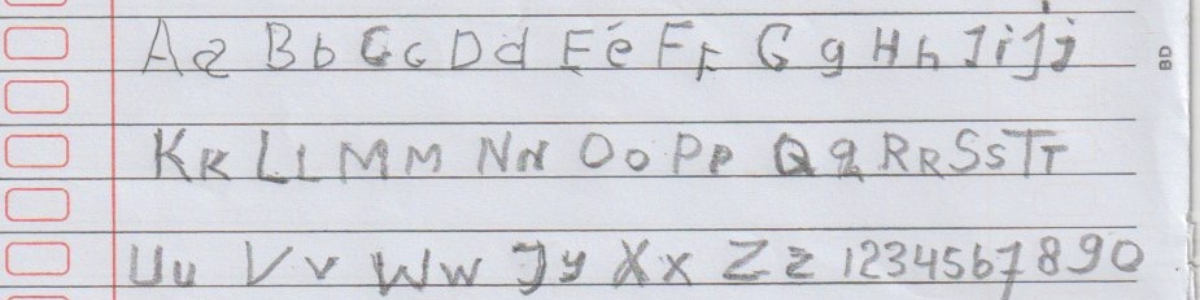 Aa Bb Cc Dd Ee Ff Gg Hh Ii Jj
Kk Ll Mm Nn Oo Pp Qq Rr Ss Tt
Uu Vv Ww Yy Xx Zz 1234567890
BD